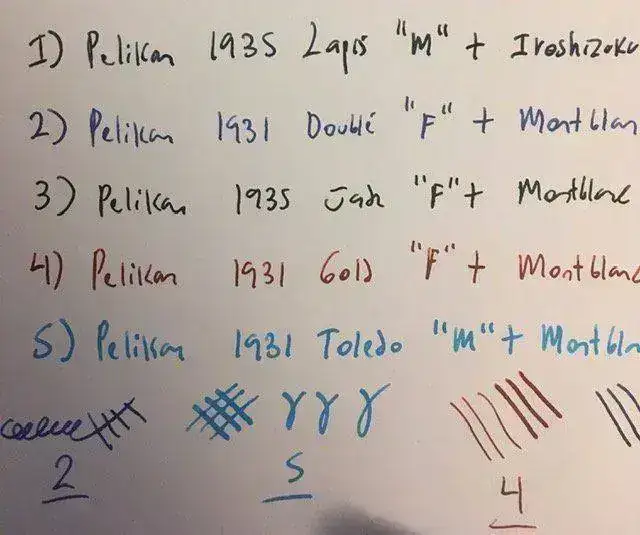 1) Pelikan 1935 Lapis "M" + Iroshizuku
2) Pelikan 1931 Doublé "F" + Montblan
3) Pelikan 1935 Jade "F" + Montblanc
4) Pelikan 1931 Gold "F" + Montblanc
5) Pelikan 1931 Toledo "M" + Montbla
γ γ γ
2 5 4